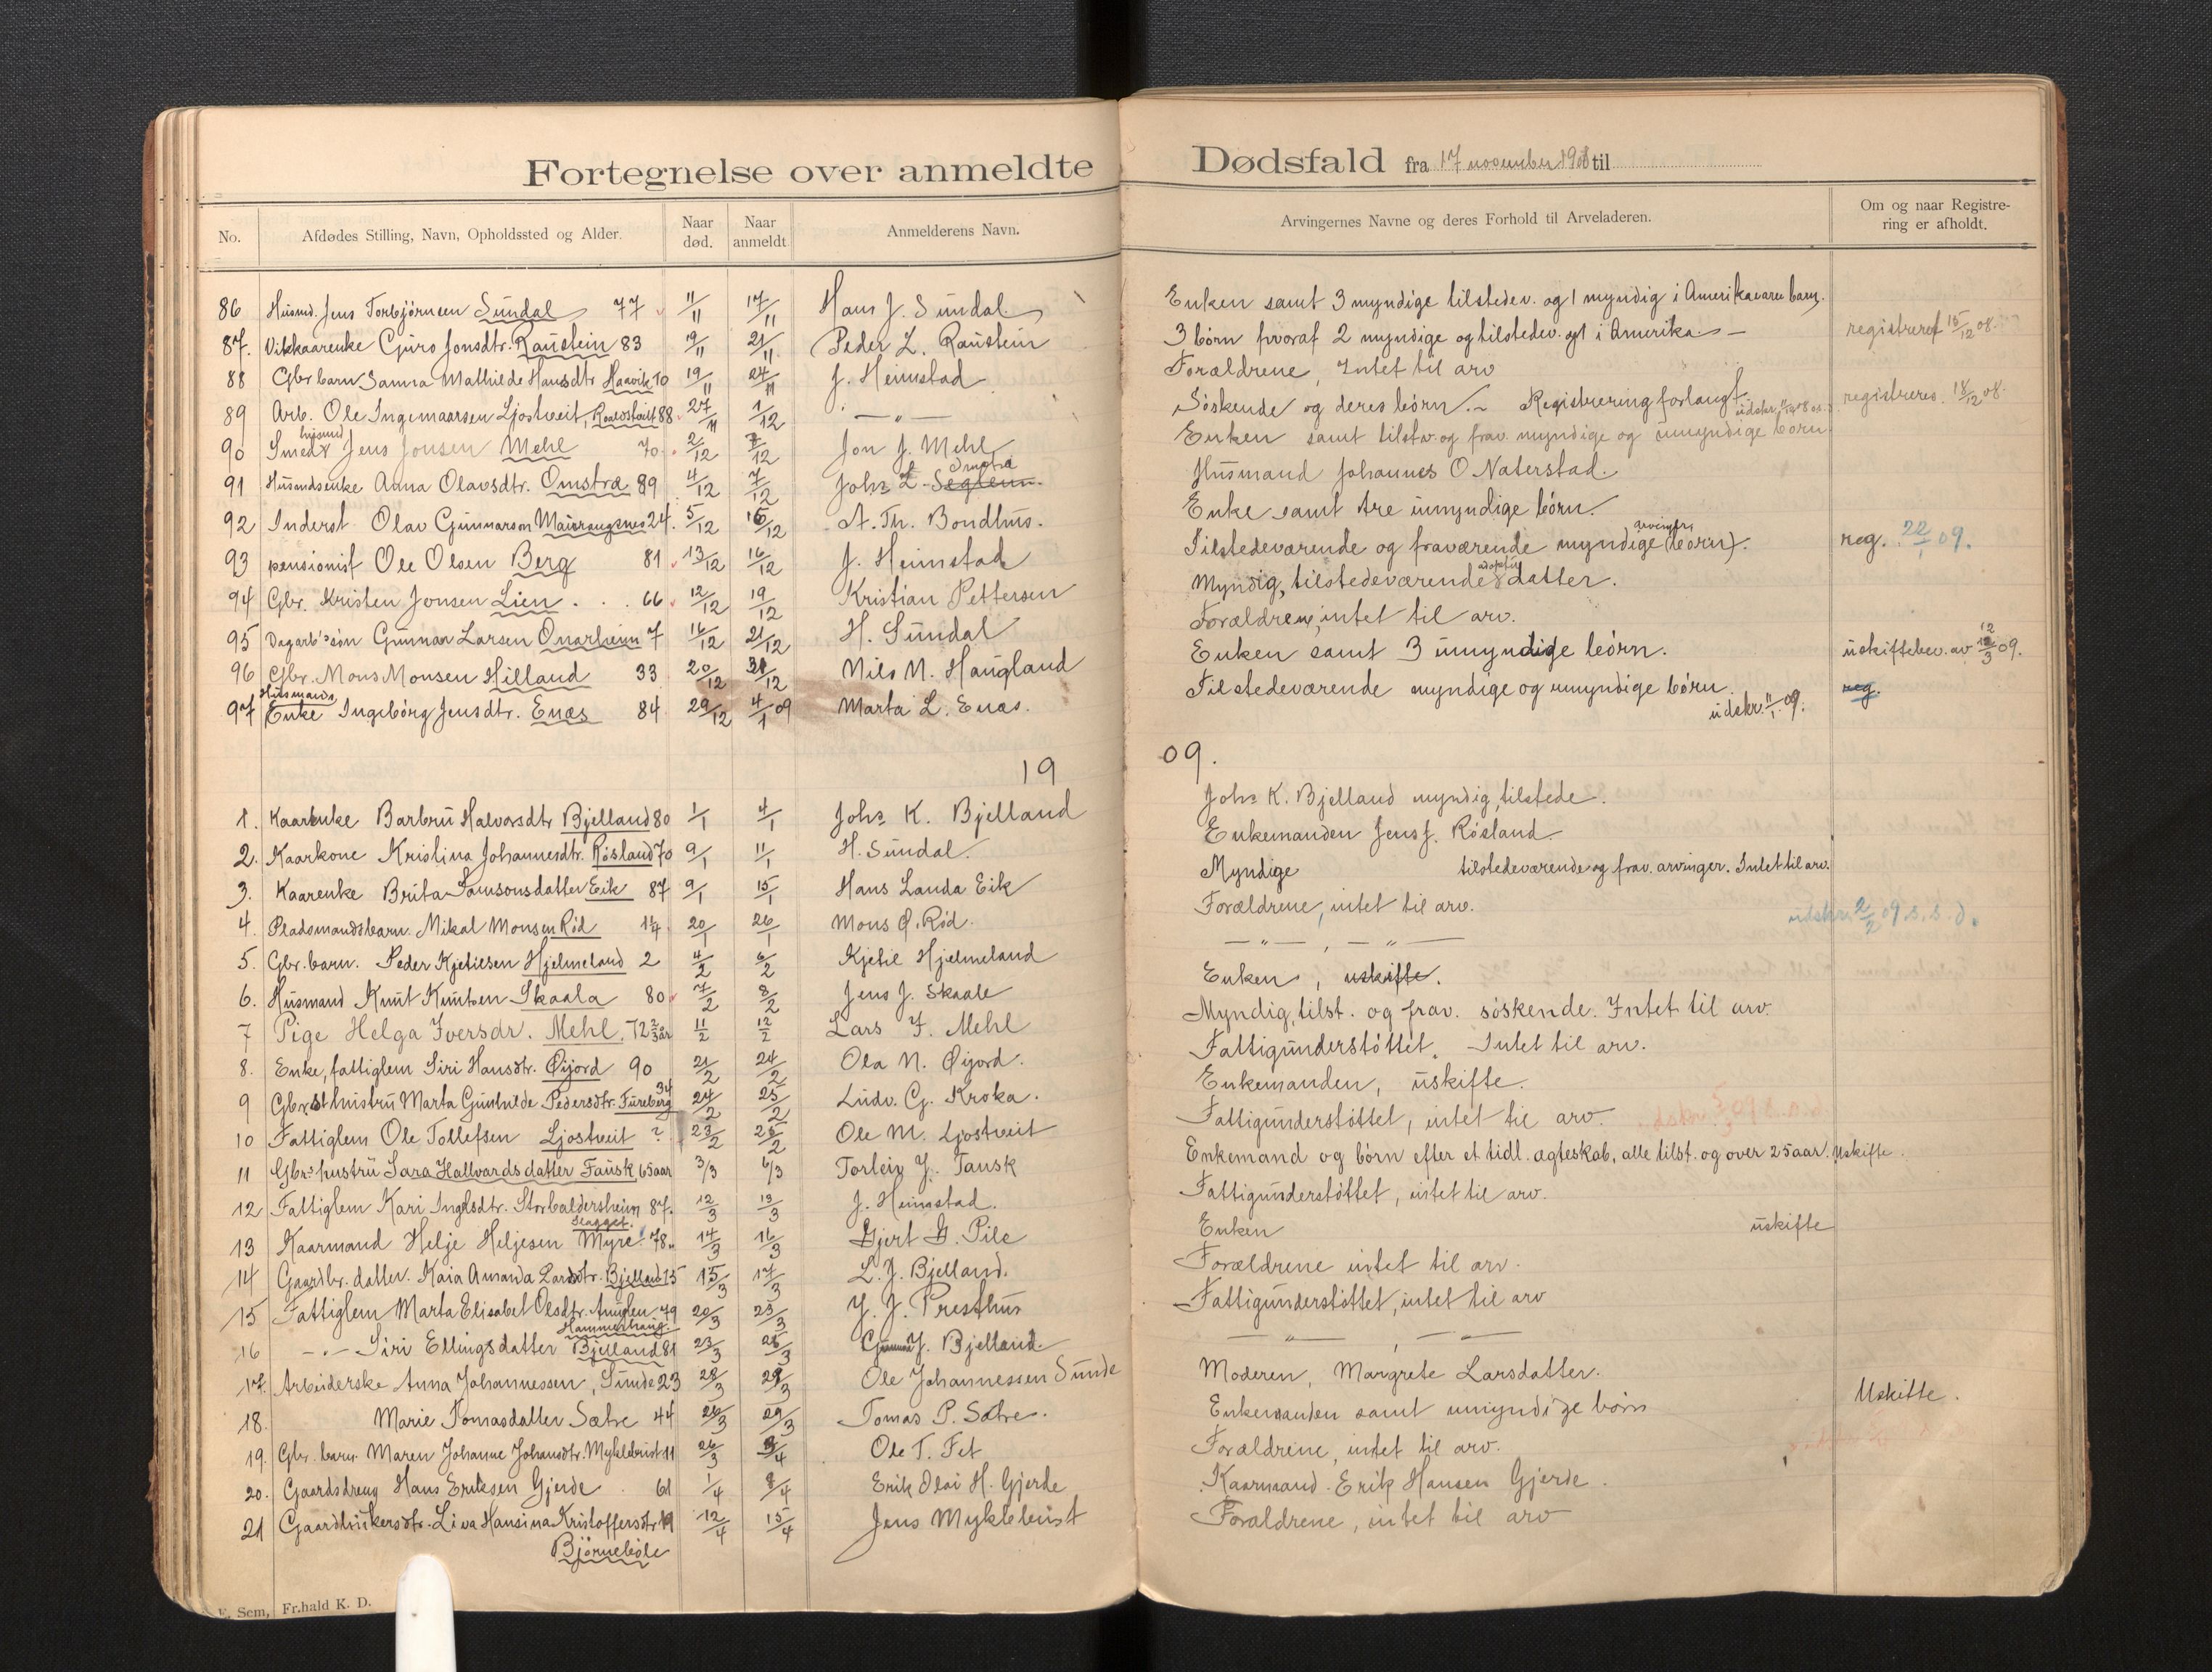 Fortegnelse over anmeldte Dødsfald fra 17 november 1908 til
No. Afdødes Stilling, Navn, Opholdssted og Alder. Naar død. Naar anmeldt Anmelderens Navn. Arvingernes Navne og deres Forhold til Arveladeren. Om og naar Registrering er afholdt.
86 Husmd. Jens Torbjørnsen Sundal 77 11/11 17/11 Hans J. Sundal Enken samt 3 myndige tilstedev. og 1 myndig i Amerika værn barn.
87. Vikkaarenke Guro Jonsdtr. Raustein 83 19/11 21/11 Peder L. Raustein 3 børn hvoraf 2 myndige og tilstedev. og 1 i Amerika. registreret 15/12 08.
88 Gbr barn Samra Mathilde Hansdtr Haavik 10 19/11 24/11 J. Heimstad Forældrene, Intet til arv
89 Arb. Ole Ingemaarsen Ljostveit, 88 27/11 1/12 — " — Søskende og deres børn. Registrering forlangt. registreres. 18/12 08.
90 Smed husmd Jens Jonsen Mehl 70 2/12 7/12 Jon J. Mehl Enken samt tilstv. og frav. myndige og umyndige børn.
91 Husmdsenke Anna Olavsdtr. Omstra 89 4/12 7/12 Johs L. Seglem Omstra Husmand Johannes O Naterstad.
92 Inderst Olav Gunnarson 24. 5/12 16/12 A. Th. Bondhus. Enke samt tre umyndige børn.
93 pensionist Ole Olsen Berg 81 13/12 16/12 J. Heimstad Tilstedeværende og fraværende myndige (børn) arvinger. reg. 22/1 09.
94 Gbr. Kristen Jonsen Lien . . . 66 12/12 19/12 Kristian Pettersen Myndig, tilstedeværende adoptiv datter.
95 Dagarb's søn Gunnar Larsen Onarheim 7 16/12 21/12 H. Sundal Forældrene, intet til arv.
96 Gbr. Mons Monsen Hilland 33 20/12 31/12 Nils N. Haugland Enken samt 3 umyndige børn. uskiftebev. av 12/3 09.
97 Husmands Enke Ingebørg Jensdtr. Enæs 84 29/12 4/1 09 Marta L. Enæs. Tilstedeværende myndige og umyndige børn. udskr. 11/1 09. reg.
19 09.
1. Kaarenke Barbru Halvorsdtr Bjelland 80 1/1 4/1 Johs K. Bjelland Johs K. Bjelland myndig, tilstede.
2. Kaarkone Kristina Johannesdtr. Røsland 70 9/1 11/1 H. Sundal. Enkemanden Jens J. Røsland
3. Kaarenke Brita Samsonsdatter Eik 87 9/1 15/1 Hans Landa Eik Myndige tilstedeværende og frav. arvinger. Intet til arv.
4. Pladsmandsbarn. Mikal Monsen Rød 1/4 20/1 26/1 Mons Ø. Rød. Forældrene, intet til arv.
5. Gbr. barn. Peder Kjetilsen Hjelmeland 2 4/2 6/2 Kjetil Hjelmeland — " — , — " — udskr. 2/2 09. s. s. d.
6. Husmand Knut Knutsen Skaala 80 7/2 8/2 Jens J. Skaale Enken, uskifte.
7 Pige Helga Iversdr. Mehl, 72 2/3 år 11/2 12/2 Lars I. Mehl Myndig, tilst. og frav. søskende. Intet til arv.
8. Enke, fattiglem Siri Hansdtr. Øijord 90 21/2 24/2 Ola N. Øijord. Fattigunderstøttet. Intet til arv.
9 Gbrs hustru Marta Gunhilde Pedersdtr. Fureberg 34 24/2 25/2 Ludv. G. Kroka. Enkemanden, uskifte.
10 Fattiglem Ole Tollefsen Ljostveit ? 23/2 25/2 Ole M. Ljostveit Fattigunderstøttet, intet til arv.
11 Gbr.s hustru Sara Hallvardsdatter Fausk, 65 aar 3/3 6/3 Torleiv J. Fausk Enkemand og børn efter et tidl. ægteskab, alle tilst. og over 25 aar. Uskifte.
12 Fattiglem Kari Ingelsdtr. Storbaldersheim 87. 12/3 13/3 J. Heimstad. Fattigunderstøttet, intet til arv.
13 Kaarmand Helje Heljesen Myre 78. 14/3 16/3 Gjert G. Pile Enken uskifte
14 Gaardbr. datter. Kaia Amanda Larsdtr. Bjelland 15 15/3 17/3 L. J. Bjelland. Forældrene intet til arv.
15 Fattiglem Marta Elisabet Olsdtr. 79 20/3 23/3 J. J. Presthus Fattigunderstøttet, intet til arv
16 — " — Siri Ellingsdatter Bjelland Hammerhaug. 81 23/3 25/3 Gunnar J. Bjelland. — " — , — " —
17. Arbeiderske Anna Johannessen, Sunde 23 28/3 29/3 Ole Johannessen Sunde Moderen, Margrete Larsdatter.
18. Marie Tomasdatter Sætre 44 26/3 29/3 Tomas P. Sætre. Enkemanden samt umyndige børn Uskifte.
19. Gbr. barn. Maren Johanne Johansdtr. Myklebust 11 26/3 3/4 Ole T. Fet Forældrene, intet til arv.
20. Gaardsdreng Hans Eriksen Gjerde 61 1/4 8/4 Erik Olai H. Gjerde Kaarmand. Erik Hansen Gjerde.
21 Gaardbrukersdtr. Liva Hansina Kristoffersdtr 19 12/4 15/4 Jens Myklebust Forældrene, intet til arv
Bjørnebøle
Sem, Fr.hald K. D.